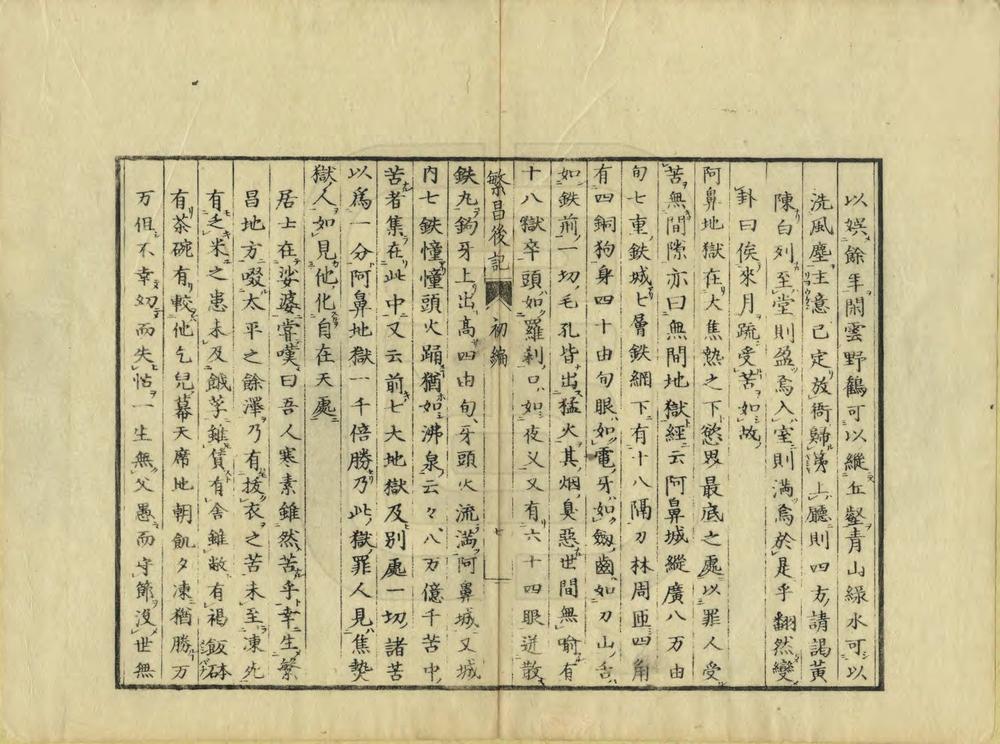 以娯餘年閑雲野鶴可以縱丘壑青山綠水可以
洗風塵主意已定放衙歸第上廳則四方請謁黃
陳白列至堂則盈焉入室則滿焉於是乎翻然變
卦曰俟來月疏受苦如故
阿鼻地獄在大焦熱之下慾界最底之處以罪人受
苦無間隙亦曰無間地獄經云阿鼻城縱廣八万由
旬七重鉄城七層鉄網下有十八隔刀林周匝四角
有四銅狗身四十由旬眼如電牙如劔齒如刀山舌
如鉄前一切毛孔皆出猛火其烟臭惡世間無喻有
十八獄卒頭如羅刹口如夜叉又有六十四眼迸散
繁昌後記 初編 七
鉄丸鉤牙上出高四由旬牙頭火流滿阿鼻城又城
内七鉄憧憧頭火踊猶如沸泉云々八万億千苦中
苦者集在此中又云前七大地獄及別處一切諸苦
以爲一分阿鼻地獄一千倍勝乃此獄罪人見焦熱
獄人如見他化自在天處
居士在娑婆嘗嘆曰吾人寒素雖然苦乎幸生繁
昌地方啜太平之餘澤乃有拔衣之苦未至凍死
有乏米之患未及餓莩雖賃有舎雖敝有褐飯砵
有茶碗有較他乞兒幕天席地朝飢夕凍猶勝万
万但不幸幼而失怙一生無父愚而守節沒世無